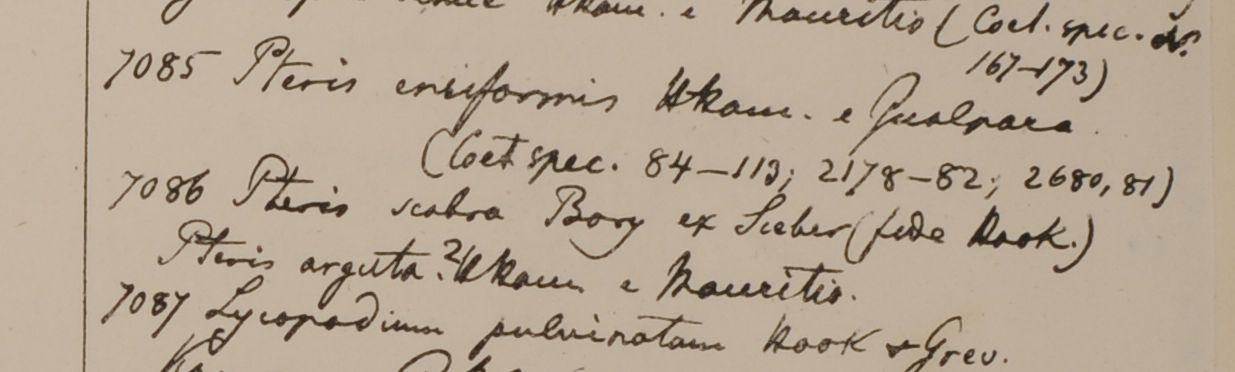 Hkaum. e Mauritio (Coet. spec. No.
167–173)
7085 Pteris ensiformis Hkaum. e Gualpara
(Coet spec. 84–113; 2178–82; 2680, 81)
7086 Pteris scabra Bory ex Sieber (fide Hook.)
Pteris arguta? Hkaum e Mauritio.
7087 Lycopodium pulvinatum Hook & Grev.